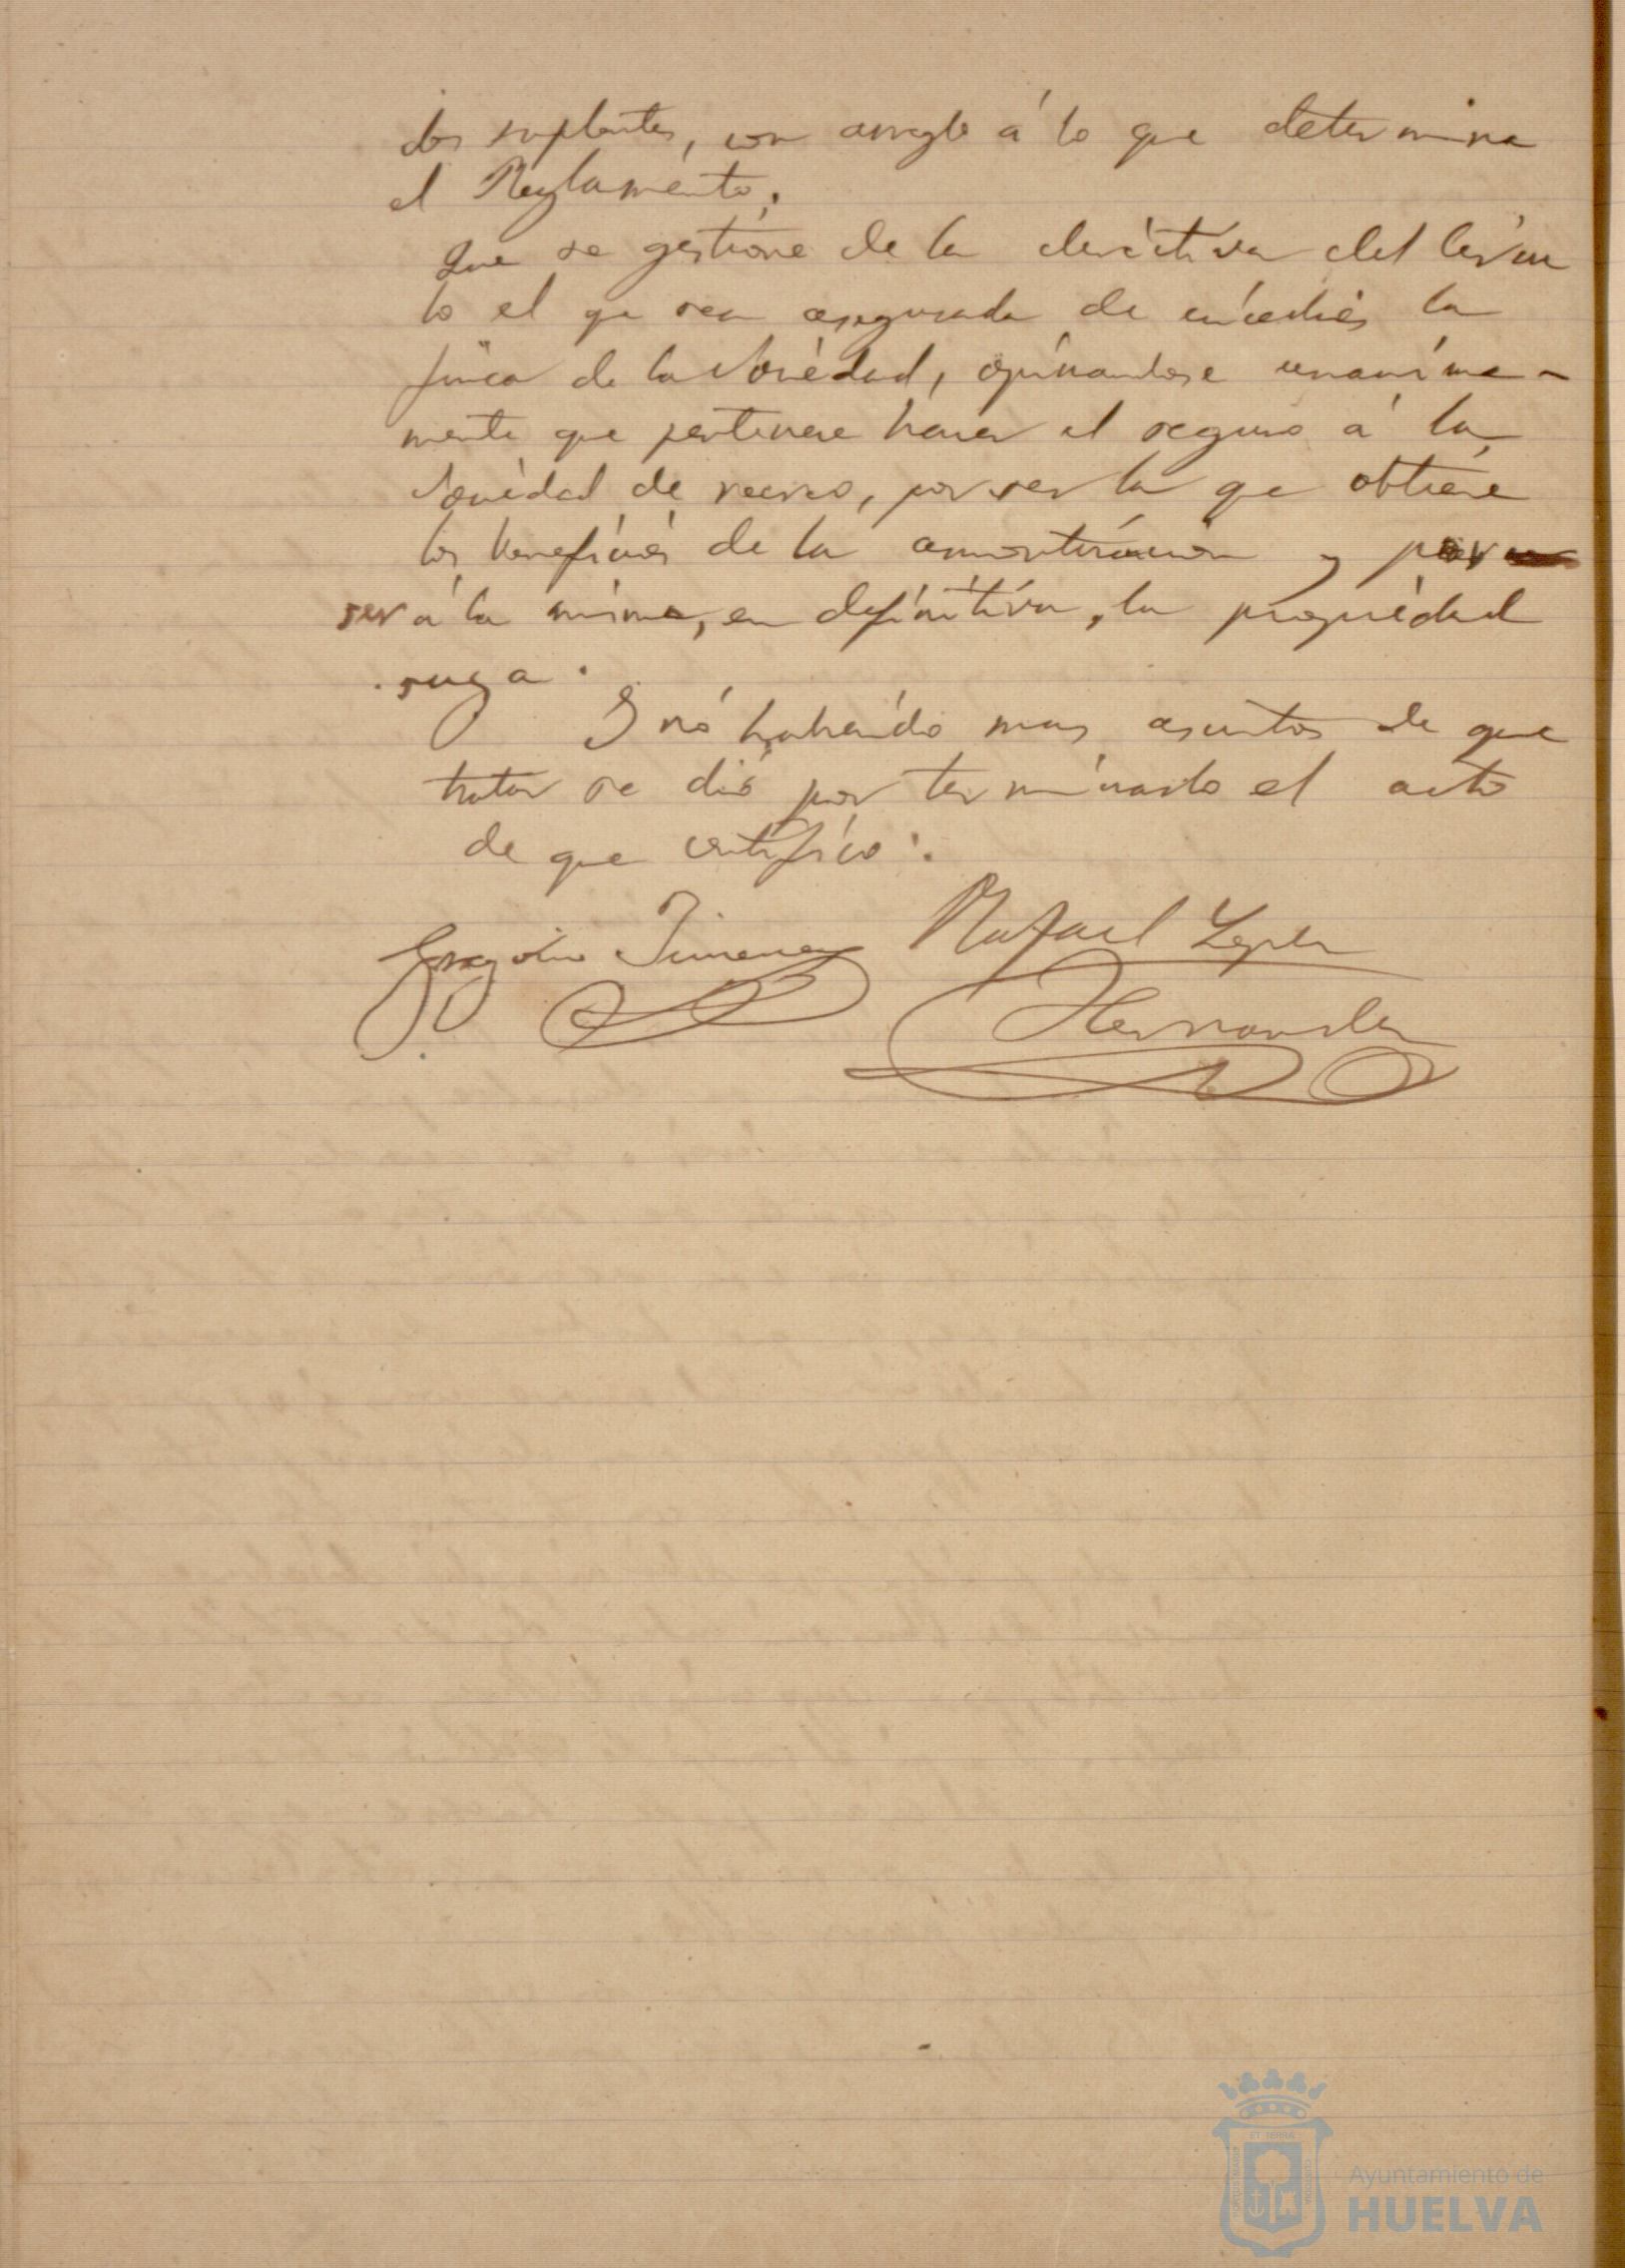 dos suplentes, con arreglo á lo que determina
el Reglamento.
Que se gestione de la directiva del Círcu
lo el qe sea asegurada de incendios la
finca de la Sociedad, opinandose unanime-
mente que pertenece hacer el seguro á la
Sociedad de recreo, por ser la qe obtiene
los beneficios de la amortización y por
ser á la misma, en definitiva, la propiedad
suya.
Y nó habiendo mas asuntos de que
tratar se dió por terminado el acto
de que certifico.
Gregorio Jimenez Rafael
Hernandez
Ayuntamiento de
HUELVA